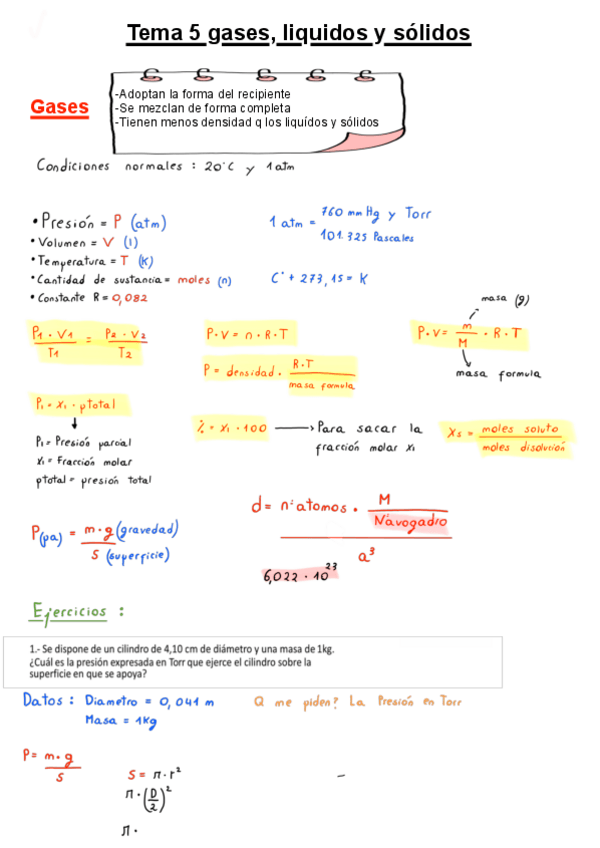 Tema 5 gases, liquidos y sólidos
Gases
-Adoptan la forma del recipiente
-Se mezclan de forma completa
-Tienen menos densidad q los liquídos y sólidos
Condiciones normales : 20°C y 1 atm
• Presión = P (atm)
• Volumen = V (l)
• Temperatura = T (K)
• Cantidad de sustancia = moles (n)
• Constante R = 0,082
1 atm = 760 mm Hg y Torr
101.325 Pascales
C° + 273,15 = K
P1 · V1 / T1 = P2 · V2 / T2
P · V = n · R · T
P = densidad · R·T / masa formula
masa (g)
P · V = m / M · R · T
masa formula
Pi = Xi · ptotal
Pi = Presión parcial
Xi = Fracción molar
ptotal = presión total
% = Xi · 100
Para sacar la
fracción molar Xi
Xs = moles soluto / moles disolución
P(pa) = m · g (gravedad) / S (superficie)
d = nº atomos · M / Navogadro / a³
6,022 · 10²³
Ejercicios :
1.- Se dispone de un cilindro de 4,10 cm de diámetro y una masa de 1kg.
¿Cuál es la presión expresada en Torr que ejerce el cilindro sobre la
superficie en que se apoya?
Datos : Diametro = 0,041 m
Masa = 1Kg
Q me piden? La Presión en Torr
P = m · g / S
S = π · r²
π · (D/2)²
π ·